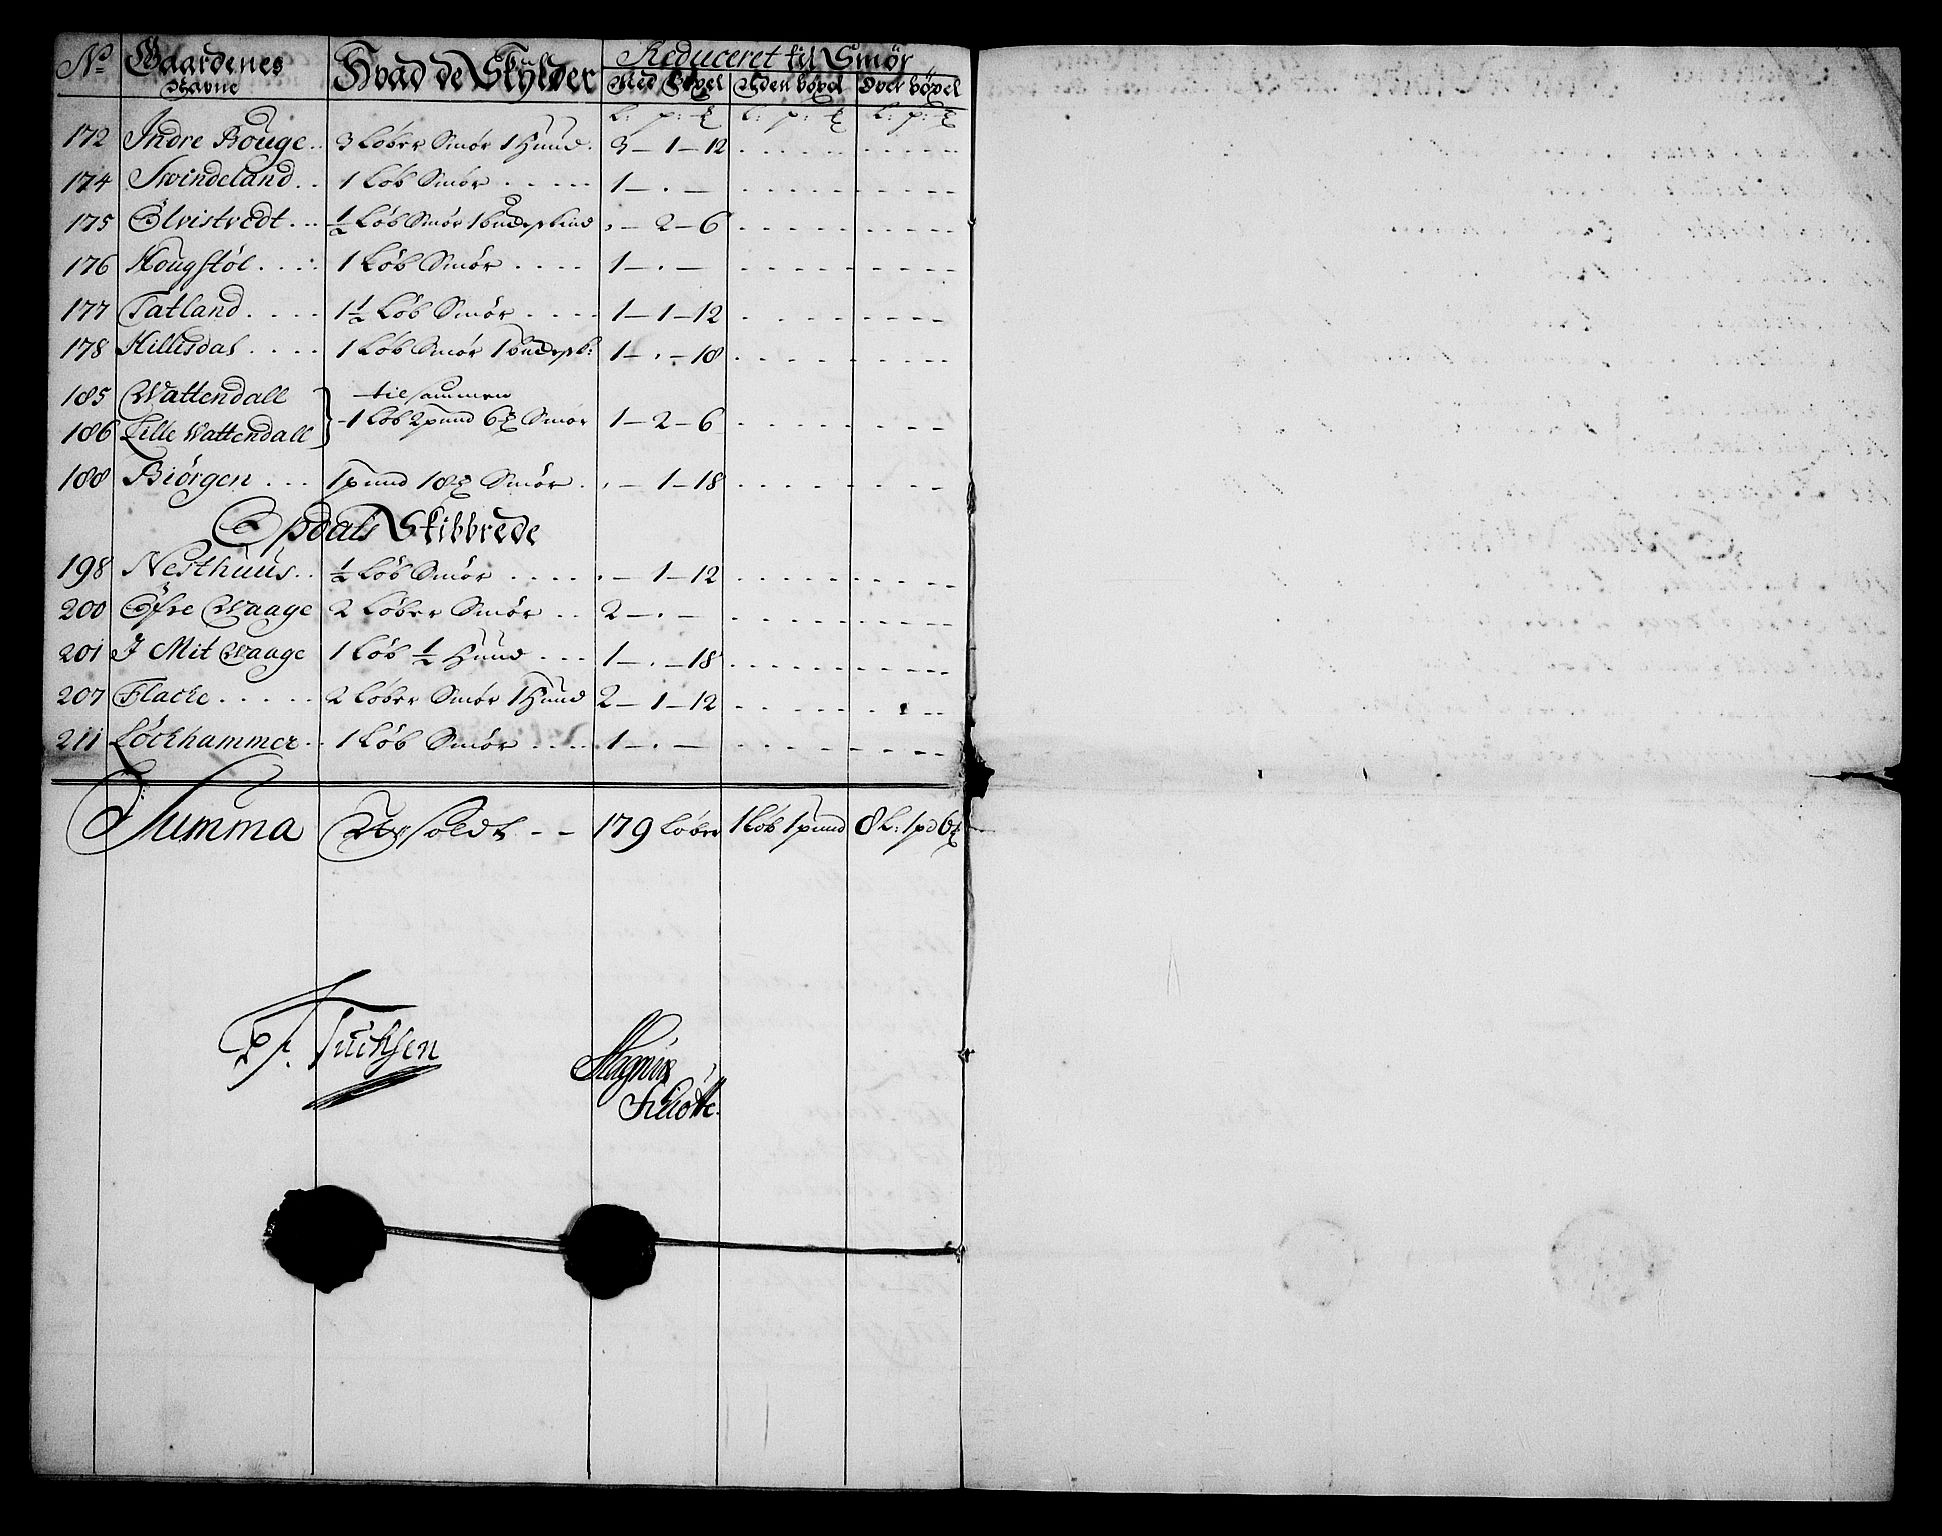 No Gaardenes Navne Hvad de Skylder Reduceret til Smør
Med Böxel Uden böxel Over böxel
L: p: ℔ L: p: ℔ L: p: ℔
172 Indre Bouge.. 3 Løber Smør 1 Huud. 3 – 1 – 12
174 Swindeland.. 1 Løb Smør ..... 1 – . –
175 Ølvistvedt... ½ Løb Smør 1 budes skind . – 2 – 6
176 Hougstøl.... 1 Løb Smør .... 1 – . –
177 Tatland.... 1½ Løb Smør .... 1 – 1 – 12
178 Hillisdal.... 1 Løb Smør 1 1 – . – 18
185 Wattendall } til sammen
186 Lille Wattendall } 1 Løb 2 pund 6 ℔ Smør 1 – 2 – 6
188 Biörgen ... 1 pund 18 ℔ Smør . . – 1 – 18
Opdals Skibbrede
198 Nesthuus.. ½ Løb Smør ..... . – 1 – 12
200 Øfre Waage 2 Løber Smør .. 2 – . –
201 I Mit Waage 1 Løb ½ Huud ... 1 – . – 18
207 Flacke ..... 2 Løber Smør 1 Huud 2 – 1 – 12
211 Löckhammer.. 1 Løb Smør .... 1 – . –
Summa – – 179 Løber 1 Løb 1 pund 8 L: 1 pd 6 ℔
Tuchsen
Magnus